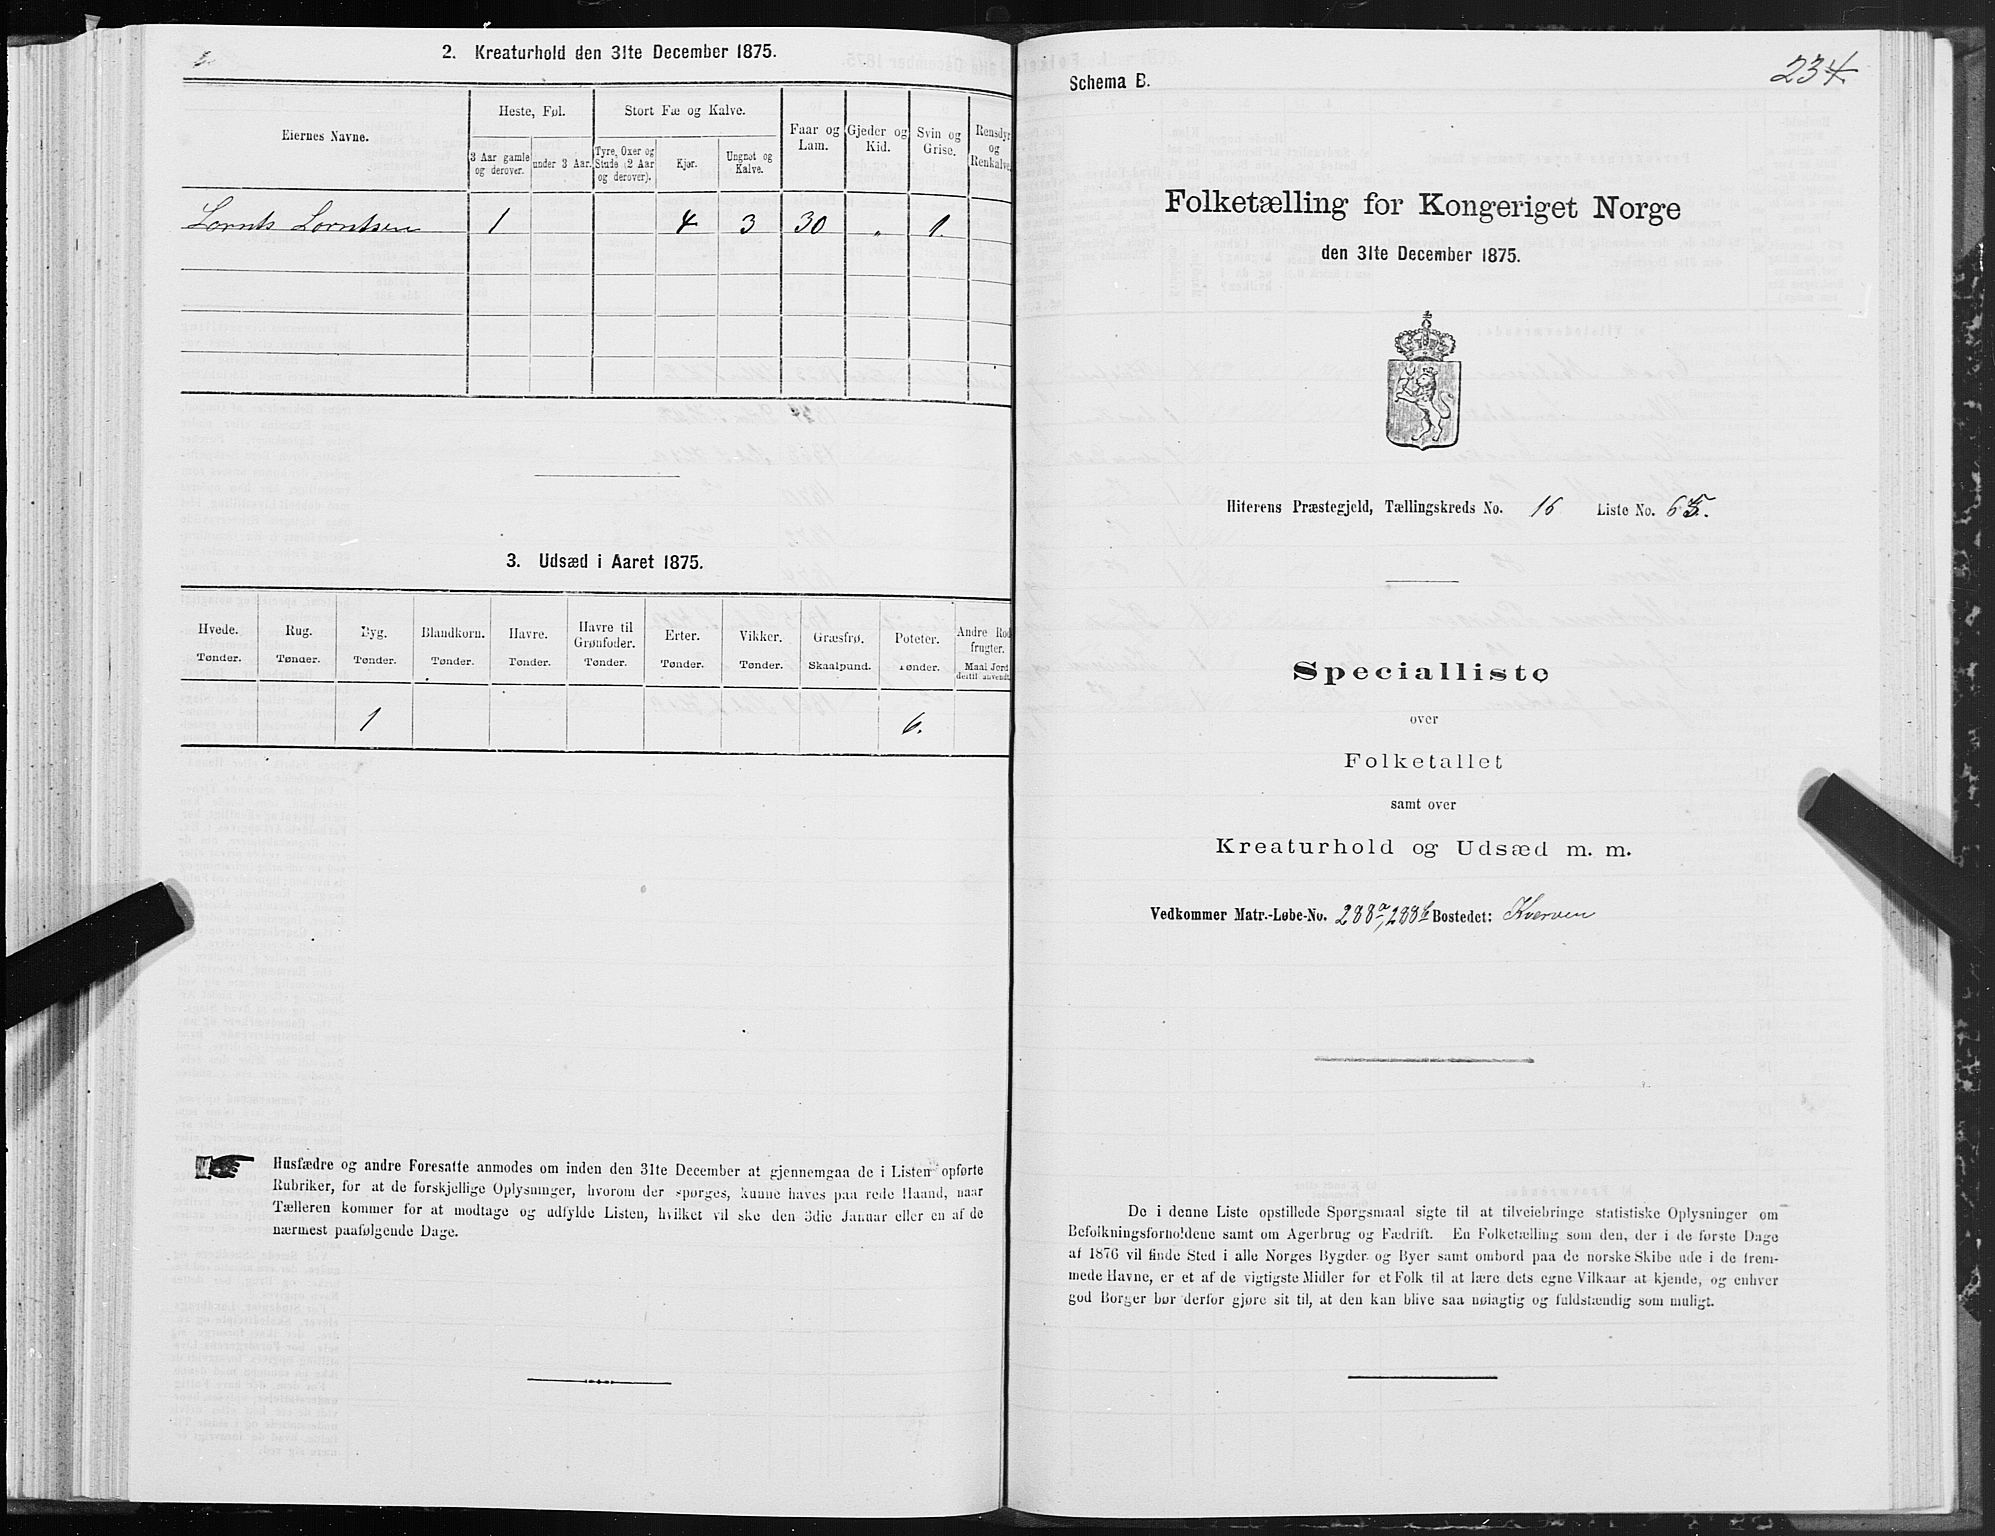 2. Kreaturhold den 31te December 1875.
Eiernes Navne.
Heste, Føl.
Stort Fæ og Kalve.
Faar og
Lam.
Gjeder og
Kid.
Svin og
Grise.
Rensdyr
og
Renkalve.
3 Aar gamle
og derover.
under 3 Aar.
Tyre, Oxer og
Stude (2 Aar
og derover).
Kjør.
Ungnøt og
Kalve.
Lornts Lorntsen 1 4 3 30 " 1.
3. Udsæd i Aaret 1875.
Hvede.
Tønder.
Rug.
Tønder.
Byg.
Tønder.
Blandkorn.
Tønder.
Havre.
Tønder.
Havre til
Grønfoder.
Tønder.
Erter.
Tønder.
Vikker.
Tønder.
Græsfrø.
Skaalpund.
Poteter.
Tønder.
Andre Rod
frugter.
Maal Jord
dertil anvendt.
1 6.
Husfædre og andre Foresatte anmodes om inden den 31te December at gjennemgaa de i Listen opførte
Rubriker, for at de forskjellige Oplysninger, hvorom der spørges, kunne haves paa rede Haand, naar
Tælleren kommer for at modtage og udfylde Listen, hvilket vil ske den 3die Januar eller en af de
nærmest paafølgende Dage.
234
Schema B.
Folketælling for Kongeriget Norge
den 31te December 1875.
Hiterens Præstegjeld, Tællingskreds No. 16 Liste No. 65.
Specialliste
over
Folketallet
samt over
Kreaturhold og Udsæd m. m.
Vedkommer Matr.-Løbe-No. 288a, 288b Bostedet: Kverven
De i denne Liste opstillede Spørgsmaal sigte til at tilveiebringe statistiske Oplysninger om
Befolkningsforholdene samt om Agerbrug og Fædrift. En Folketælling som den, der i de første Dage
af 1876 vil finde Sted i alle Norges Bygder og Byer samt ombord paa de norske Skibe ude i de frem-
mede Havne, er et af de vigtigste Midler for et Folk til at lære dets egne Vilkaar at kjende, og enhver
god Borger bør derfor gjøre sit til, at den kan blive saa nøiagtig og fuldstændig som muligt.